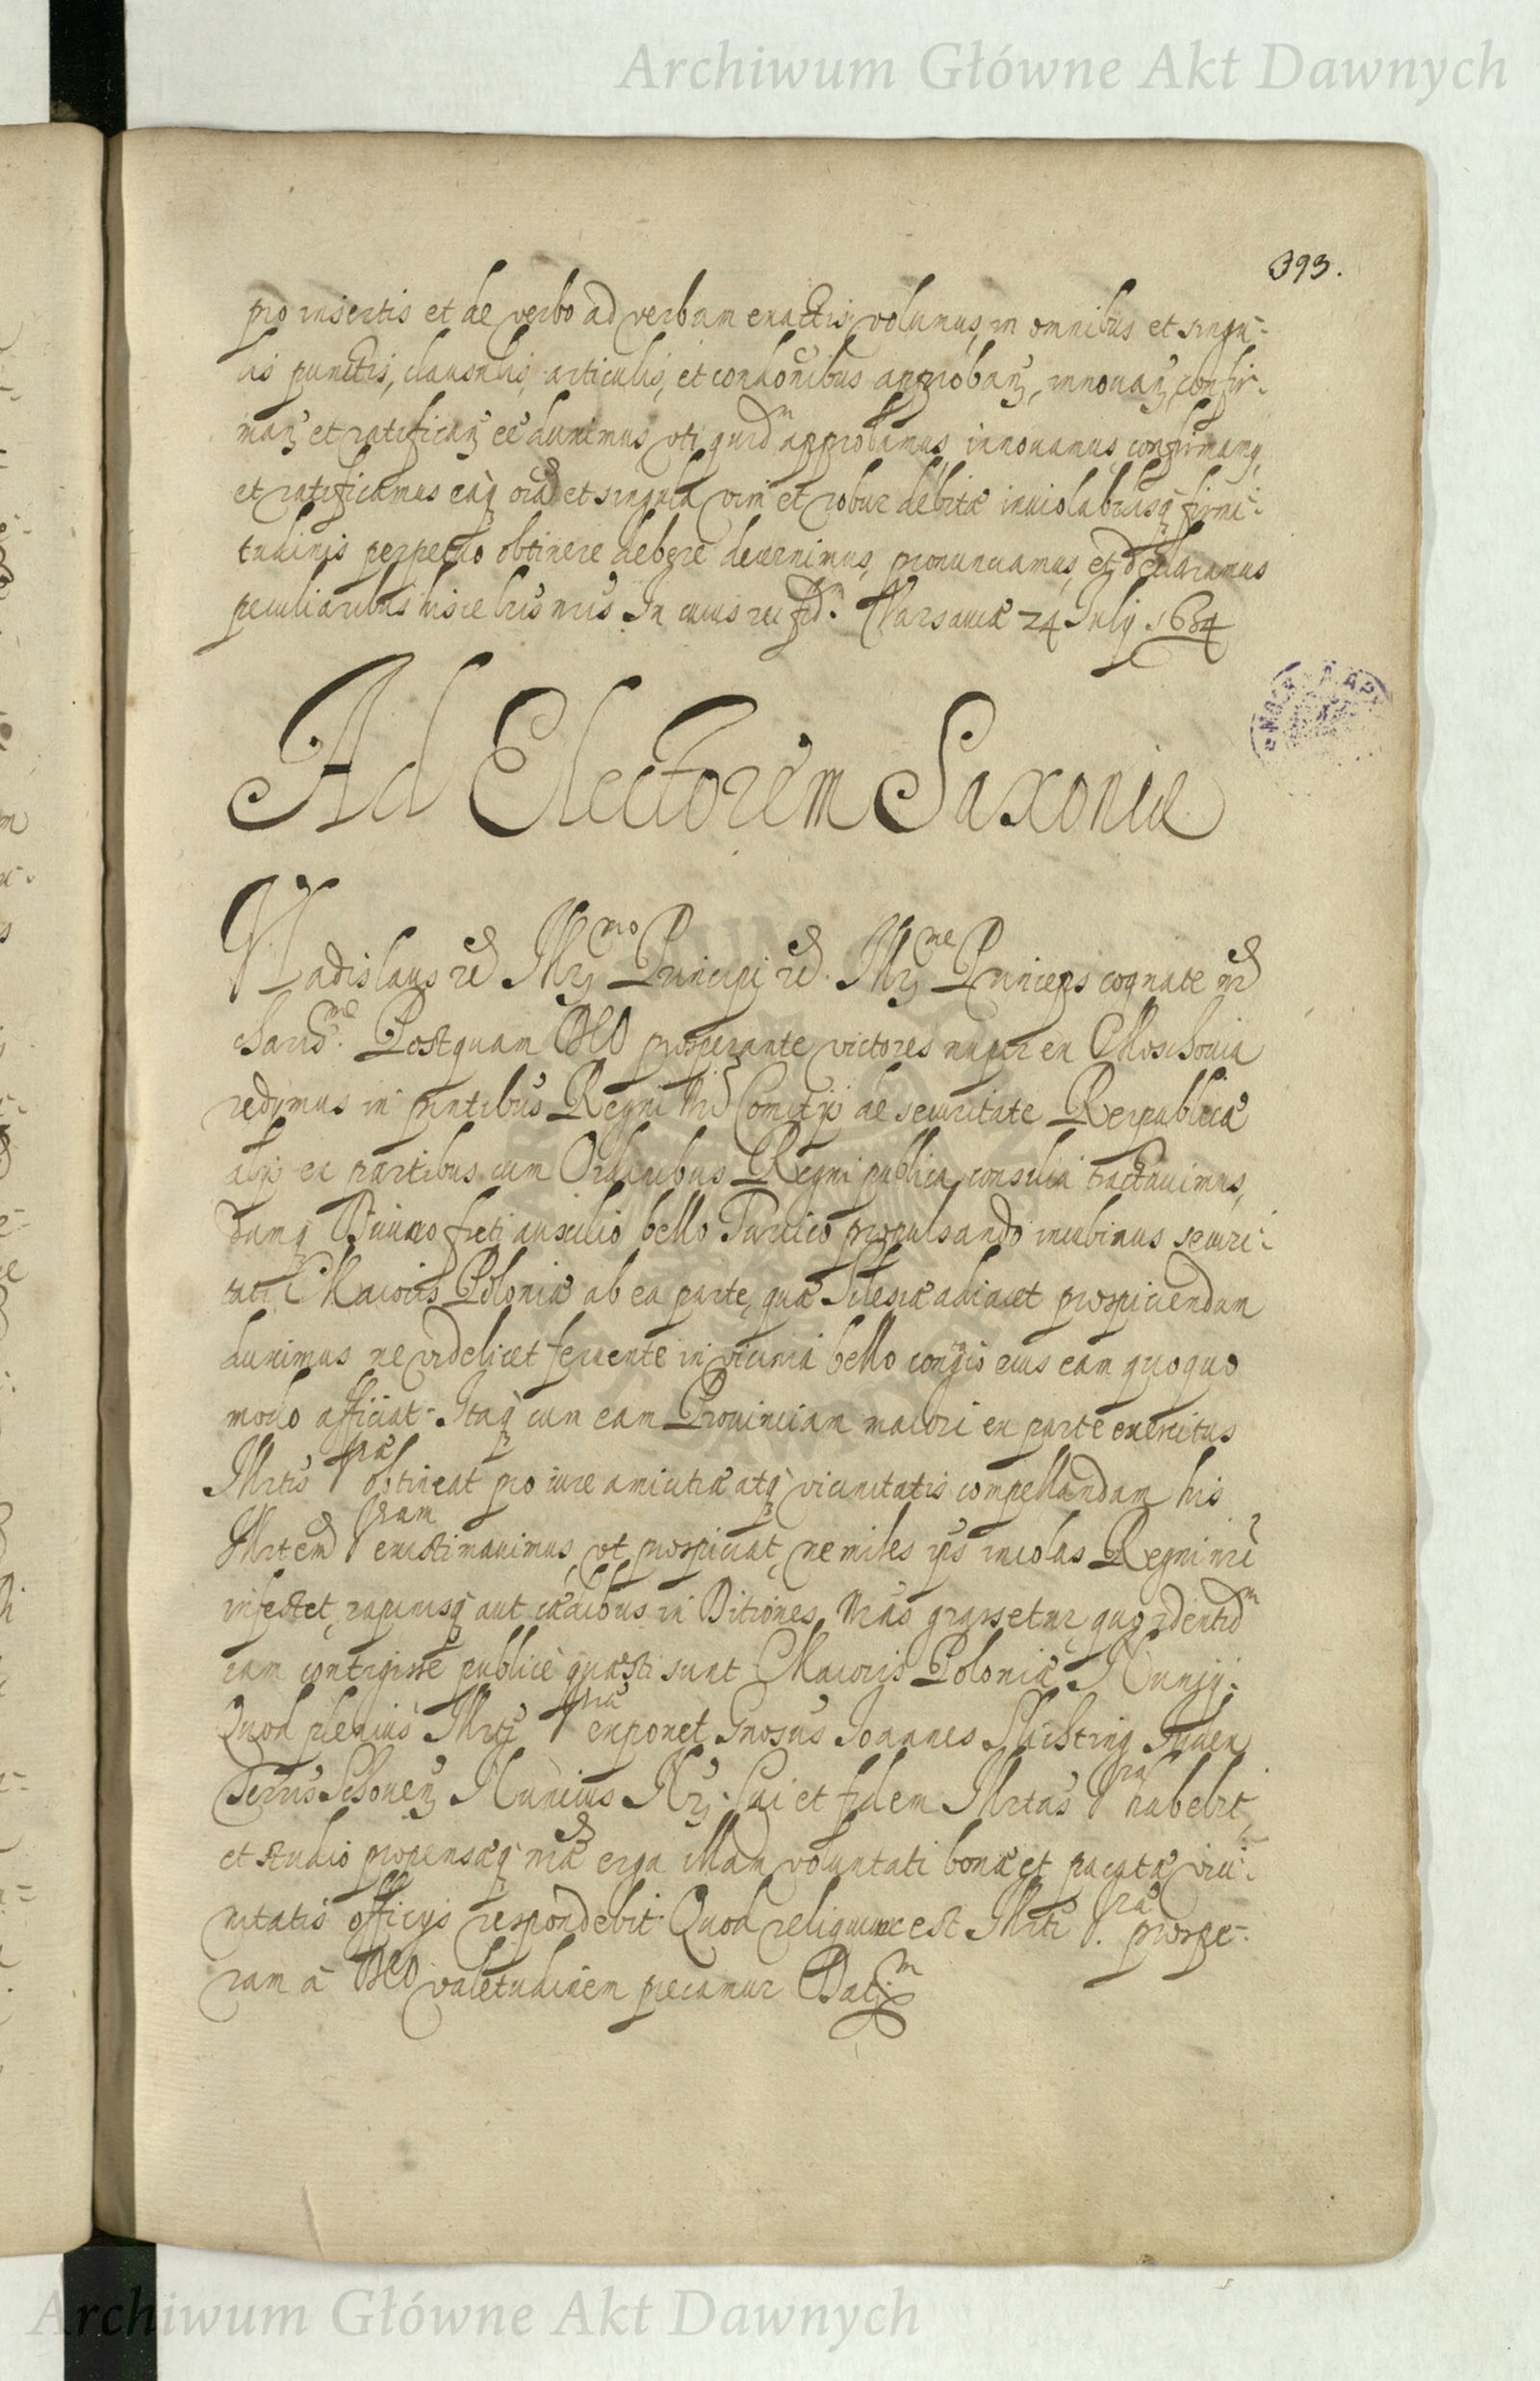 Archiwum Główne Akt Dawnych
393.
pro insertis et de verbo ad verbum exactis volumus, in omnibus et singu-
lis punctis, clausulis, articulis, et condōnibus approbanʒ, innouanʒ, confir-
manʒ et ratificanʒ eē duximus vti quidᵐ approbamus, innouamus, confirmamꝫ,
et ratificamus eaqꝫ oīa et singula vim et robur debitæ inuiolabilisqꝫ firmi-
tudinis perpetuo obtinere debere decernimus, pronunciamus, et declaramus
peculiaribus hisce lris nris. In cuius rei fidᵐ. Varsauiæ 24 July 1634
Ad Electorem Saxoniæ
Vladislaus etc Illʒᵐᵒ Principi etc. Illʒⁿᵉ Princeps cognate nr
charisᵐᵉ. Postquam DEO prosperante victores nuper ex Moschouia
redymus in pntibus Regni Nri Comitijs de securitate Reipublicæ
alijs ex partibus cum Ordinibus Regni publica consilia tractauimus,
dumqꝫ Diuino freti auxilio bello Turcico propulsando incubimus securi-
tati Maioris Poloniæ ab ea parte, quæ Silesiæ adiacet prospiciendam
duximus ne videlicet feruente in vicinia bello contagio eius eam quoquo
modo afficiat. Itaqꝫ cum eam Prouinciam maiori ex parte exercitus
Illrtis Vræ obtineat pro iure amicitiæ atqꝫ vicinitatis compellandam his
Illrtem Vram existimauimus, vt prospiciat, ne miles ijs incolas Regni nri
infestet, rapinisqꝫ aut cædibus in Ditiones Nras grassetur, quod identidᵐ
iam contigisse publicè quæsti sunt Maioris Poloniæ Nuncij.
Quod plenius Illrti Vræ exponet Gnosus Joannes Slichting Iudex
Terris Schouenʒ Nuncius Nr. Cui et fidem Illrtas Vra habebit,
et studio propensæqꝫ nræ erga illam voluntati bonæ et pacatæ vici-
nitatis officijs respondebit. Quod reliquum est Illrti V.ræ prospe-
ram à DEO valetudinem precamur Datᵐ
Archiwum Główne Akt Dawnych